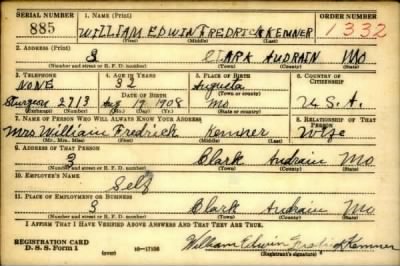 SERIAL NUMBER 1. NAME (Print) ORDER NUMBER
885 WILLIAM EDWIN FREDRICK KEMNER 1332
(First) (Middle) (Last)
2. ADDRESS (Print)
3 CLARK AUDRAIN MO
(Number and street or R. F. D. number) (Town) (County) (State)
3. TELEPHONE 4. AGE IN YEARS 5. PLACE OF BIRTH 6. COUNTRY OF CITIZENSHIP
NONE 32 Augusta
DATE OF BIRTH (Town or county)
Sturgeon 2713 Aug 19 1908 Mo U.S.A.
(Exchange) (Number) (Mo.) (Day) (Yr.) (State or country)
7. NAME OF PERSON WHO WILL ALWAYS KNOW YOUR ADDRESS 8. RELATIONSHIP OF THAT PERSON
Mrs. William Fredrick Kemner Wife
(Mr., Mrs., Miss) (First) (Middle) (Last)
9. ADDRESS OF THAT PERSON
3 Clark Audrain Mo
(Number and street or R. F. D. number) (Town) (County) (State)
10. EMPLOYER'S NAME
Self
11. PLACE OF EMPLOYMENT OR BUSINESS
3 Clark Audrain Mo
(Number and street or R. F. D. number) (Town) (County) (State)
I AFFIRM THAT I HAVE VERIFIED ABOVE ANSWERS AND THAT THEY ARE TRUE.
REGISTRATION CARD
D. S. S. Form 1 William Edwin Fredrick Kemner
(Registrant's signature)